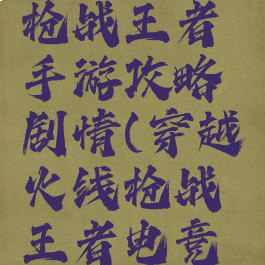 枪战王者
手游攻略
剧情(穿越
火线枪战
王者电竞